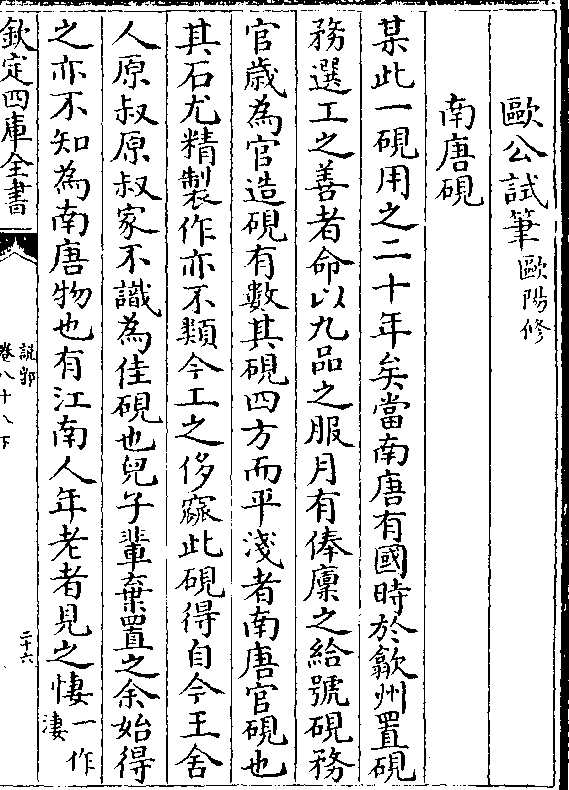 歐公試筆歐陽修
南唐硯
某此一硯用之二十年矣當南唐有國時於歙州置硯
務選工之善者命以九品之服月有俸廩之給號硯務
官歲為官造硯有數其硯四方而平淺者南唐官硯也
其石尤精製作亦不類今工之侈窳此硯得自今王舍
人原叔原叔家不識為佳硯也兒子輩棄置之余始得
之亦不知為南唐物也有江南人年老者見之悽一作淒
欽定四庫全書
說郛
卷八十八下
二十六